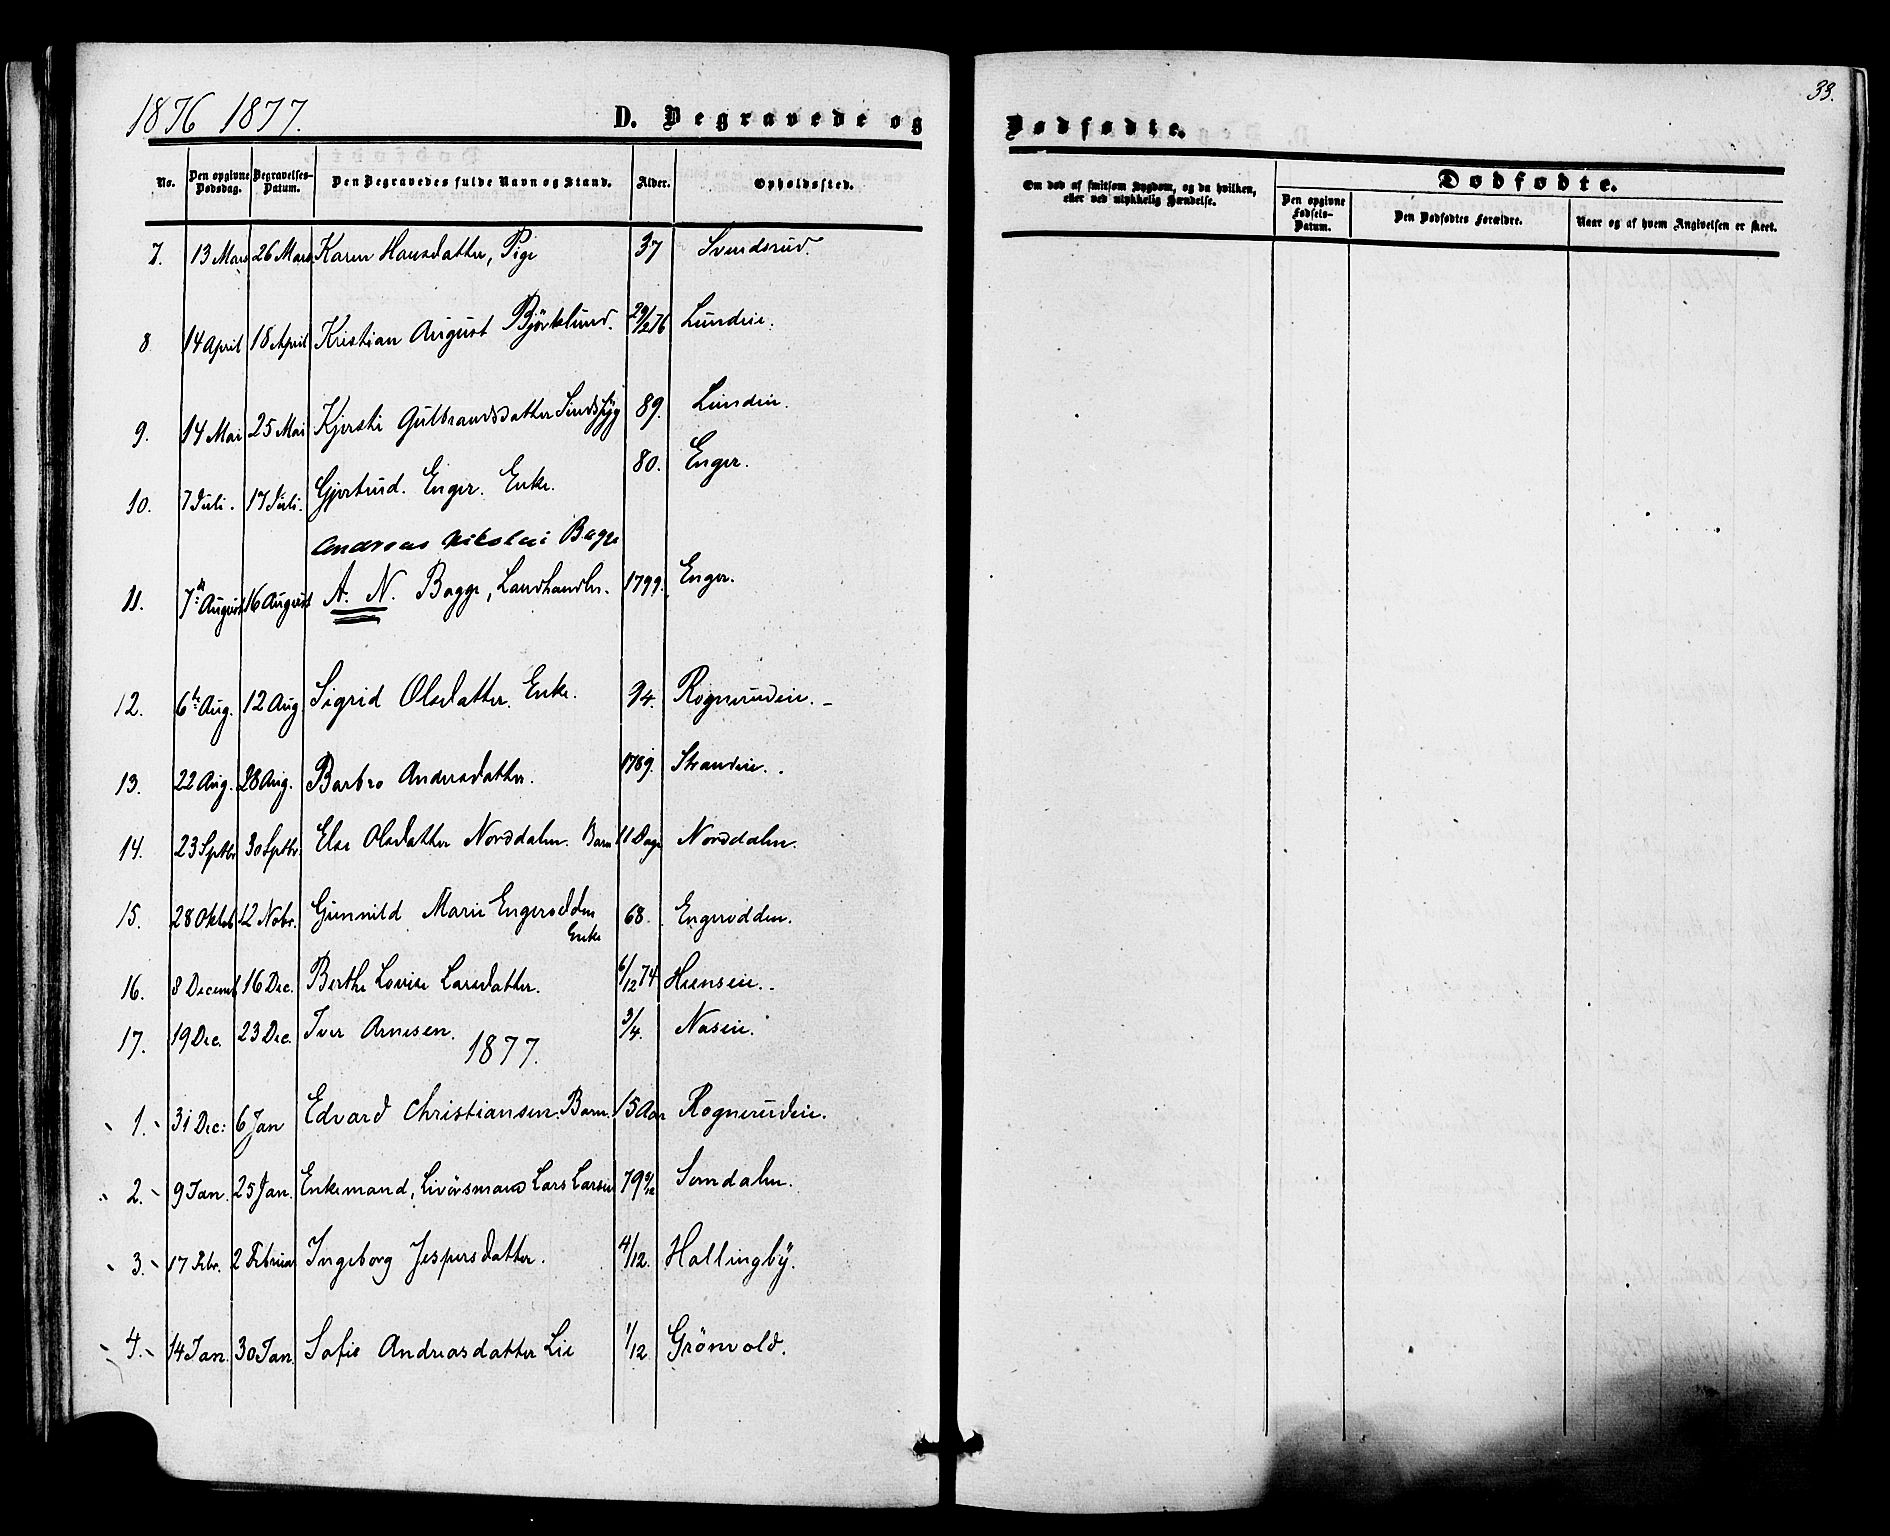 1876 1877.
D. Begravede og
Dødfødte.
33.
No. Den opgivne Dødsdag. Begravelses-Datum. Den Begravedes fulde Navn og Stand. Alder. Opholdssted.
Om død af smitsom Sygdom, og da hvilken, eller ved ulykkelig Hændelse.
Dødfødte.
Den opgivne Fødsels-Datum. Den Dødfødtes Forældre. Naar og af hvem Angivelsen er skeet.
7. 13 Mars 26 Mars Karen Hansdatter, Pige 37 Svendsrud.
8 14 April 18 April Kristian August Björklund. 29/12 76 Lundeie.
9. 14 Mai 25 Mai Kjersti Gulbrandsdatter Sindssyg 89. Lundeie.
10. 7 Juli. 17 Juli. Gjertrud. Enger. Enke. 80. Enger.
Andreas Nikolai Bagge
11. 7de August 16 August A. N. Bagge, Landhandler. 1799. Enger.
12. 6te Aug. 12 Aug Sigrid Olsdatter. Enke. 94. Rognerudeie.
13. 22 Aug. 28 Aug. Barbro Andersdatter. 1789. Strandeie.
14. 23 Septbr 30 Septbr. Else Olsdatter Norddalen. Barn 11 Dage Norddalen.
15. 28 Oktob 12 Nobr. Gunnild Marie Engerodden Enke 68. Engerodden.
16. 8 Decemb 16 Dec. Berthe Lovise Larsdatter. 6/12 74 Heenseie.
17. 19 Dec. 23 Dec. Iver Arnesen. 3/4. Naseie.
1877.
1. 31 Dec: 6 Jan Edvard Christiansen. Barn. 15 Aar Rognerudeie.
2. 9 Jan. 25 Jan. Enkemand, Livörsmand Lars Larsen 79 Somdalen.
3. 17 Febr. 2 Februar Ingeborg Jespersdatter. 4/12. Hallingby.
4. 14 Jan. 30 Jan. Sofie Andreasdatter Lie 1/12 Grönvold.